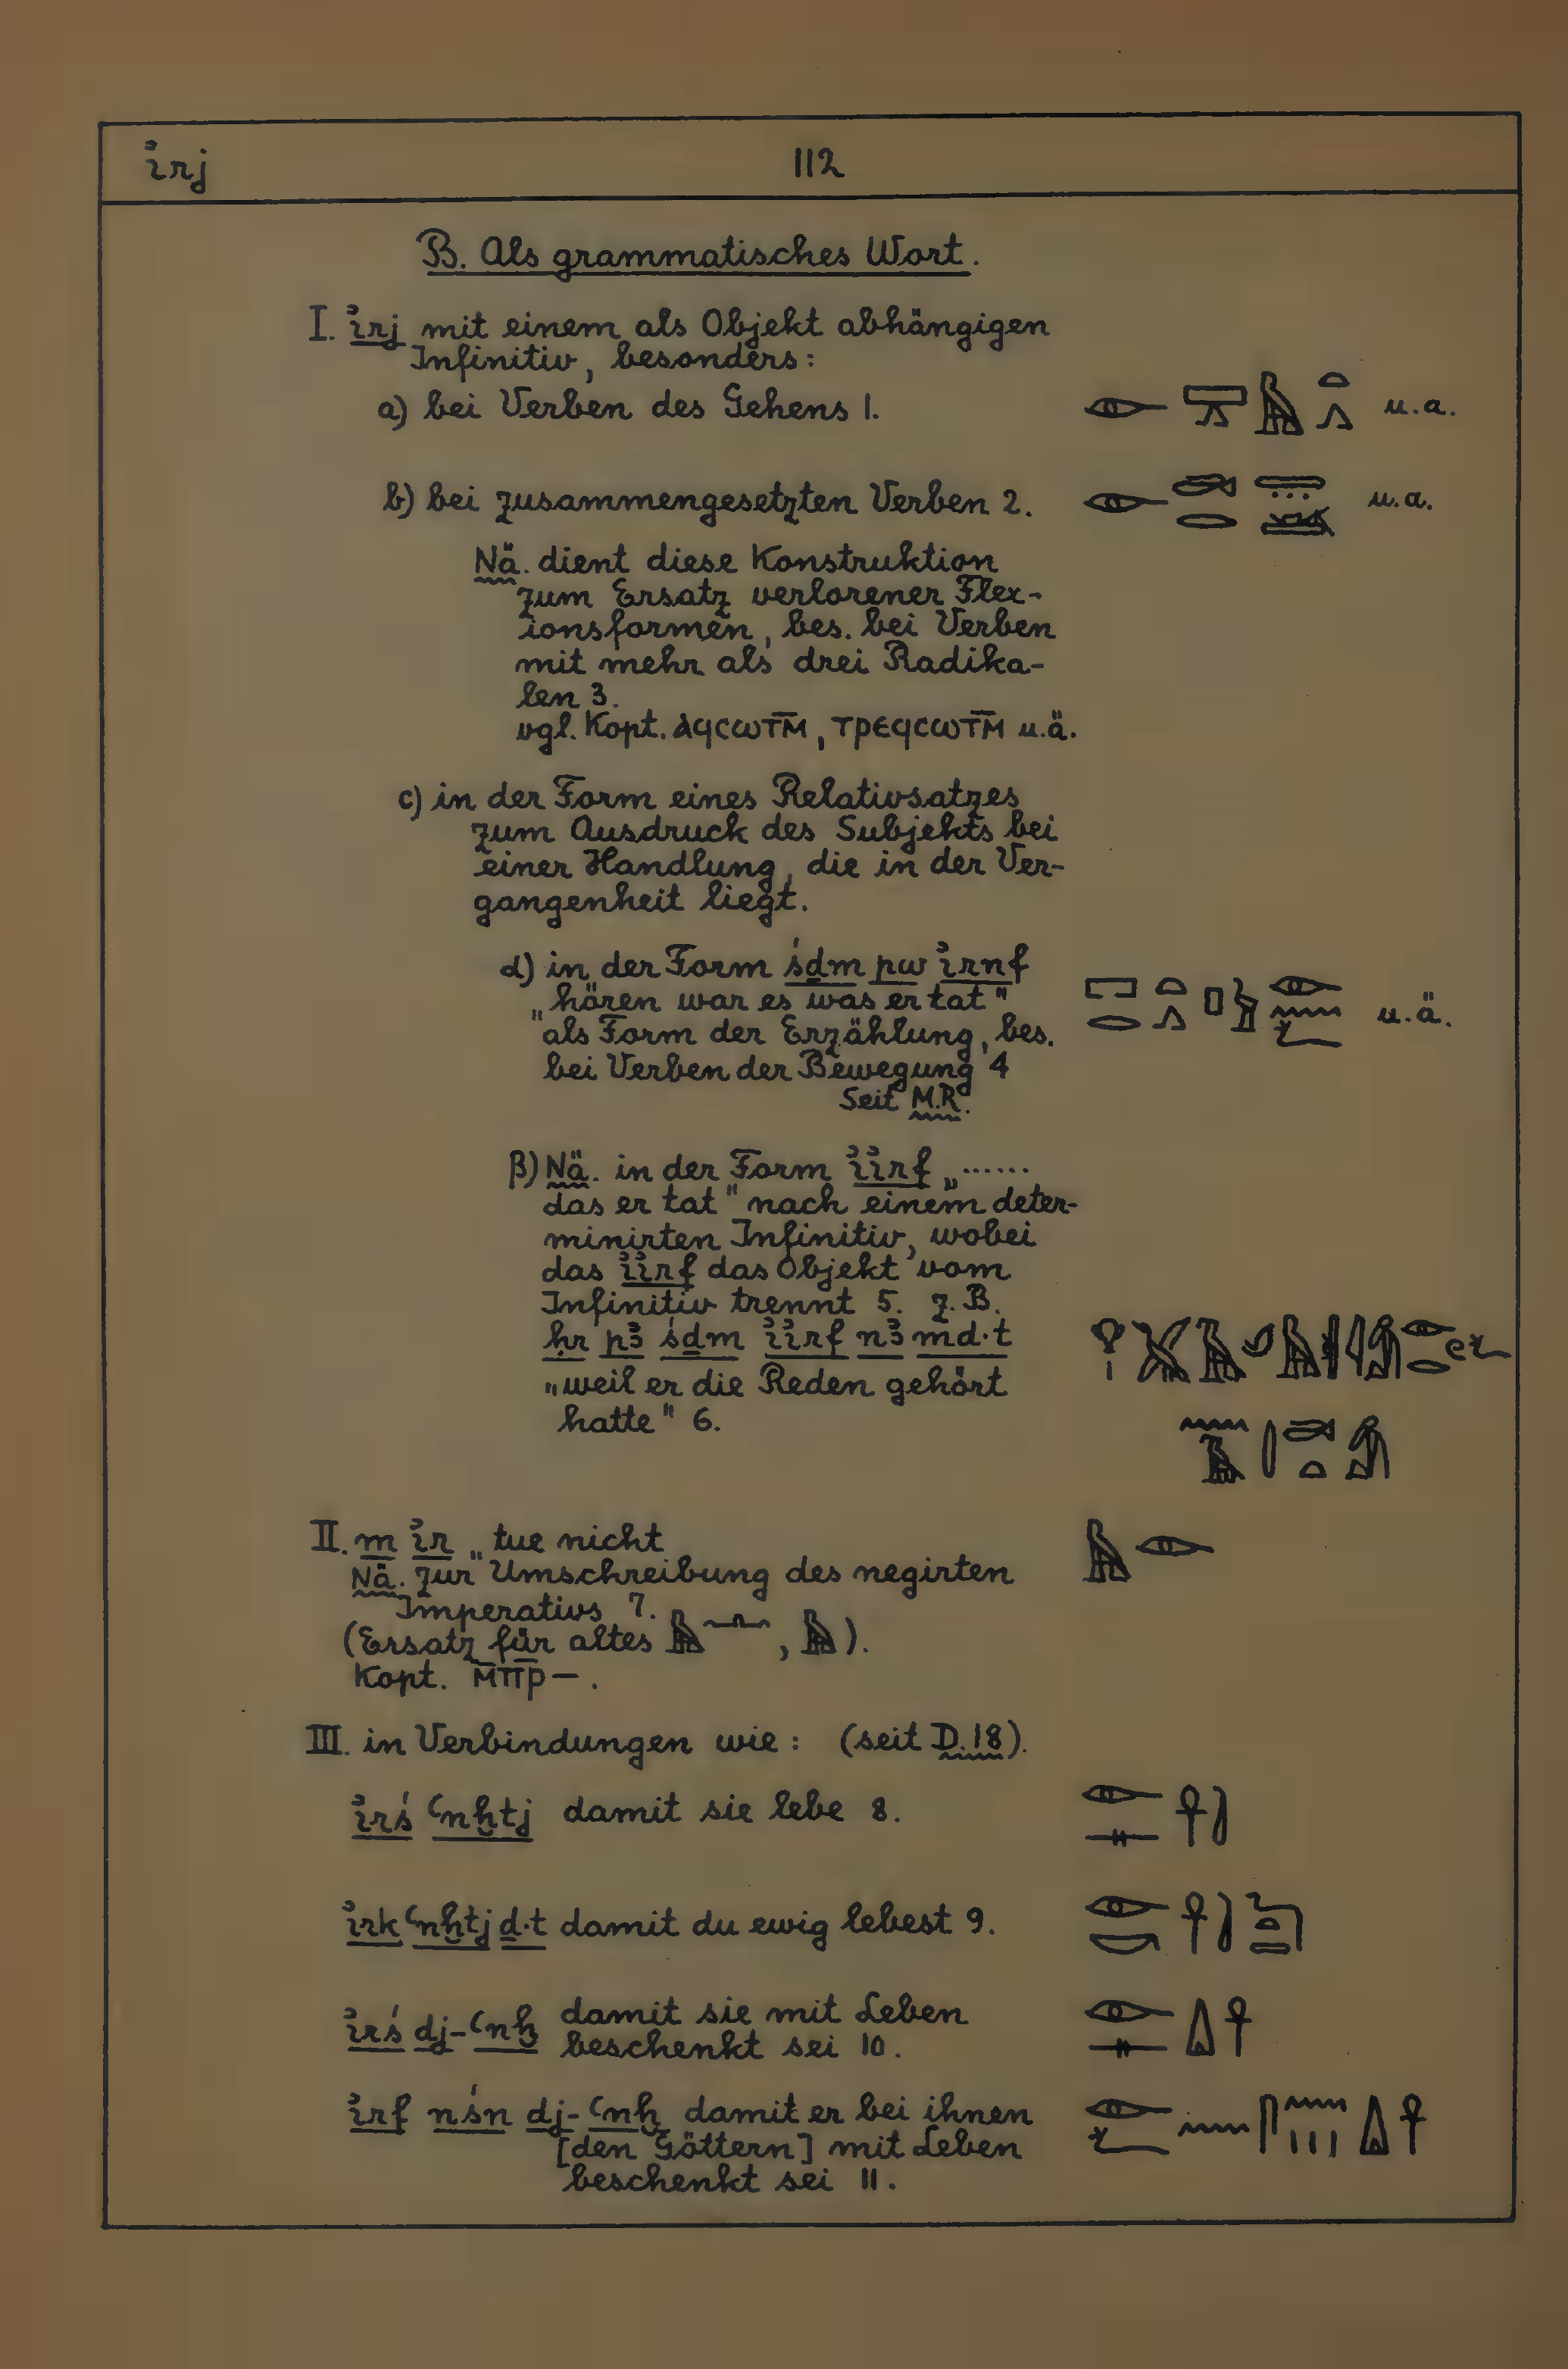 ı͗rj 112
B. Als grammatisches Wort.
I. ı͗rj mit einem als Objekt abhängigen
Infinitiv, besonders:
a) bei Verben des Gehens 1. u.a.
b) bei zusammengesetzten Verben 2. u.a.
Nä. dient diese Konstruktion
zum Ersatz verlorener Flex-
ionsformen, bes. bei Verben
mit mehr als drei Radika-
len 3.
vgl. Kopt. ⲁϥⲥⲱⲧⲙ̄, ⲧⲣⲉϥⲥⲱⲧⲙ̄ u.ä.
c) in der Form eines Relativsatzes
zum Ausdruck des Subjekts bei
einer Handlung, die in der Ver-
gangenheit liegt.
α) in der Form śḏm pw ı͗rnf
„hören war es was er tat" u.ä.
als Form der Erzählung, bes.
bei Verben der Bewegung 4
Seit M.R.
β) Nä. in der Form ı͗ı͗rf „......
das er tat" nach einem deter-
minirten Infinitiv, wobei
das ı͗ı͗rf das Objekt vom
Infinitiv trennt 5. z.B.
ḥr pꜣ śḏm ı͗ı͗rf nꜣ md·t
„weil er die Reden gehört
hatte" 6.
II. m ı͗r „tue nicht
Nä. zur Umschreibung des negirten
Imperativs 7.
(Ersatz für altes 𓅓𓂜, 𓅓).
Kopt. ⲙ̄ⲡⲣ̄–.
III. in Verbindungen wie: (seit D.18).
ı͗rś ꜥnḫtj damit sie lebe 8. 𓁹𓊃𓋹𓍘
ı͗rk ꜥnḫtj ḏ·t damit du ewig lebest 9.
ı͗rś dj-ꜥnḫ damit sie mit Leben
beschenkt sei 10.
ı͗rf nśn dj-ꜥnḫ damit er bei ihnen
[den Göttern] mit Leben
beschenkt sei 11.